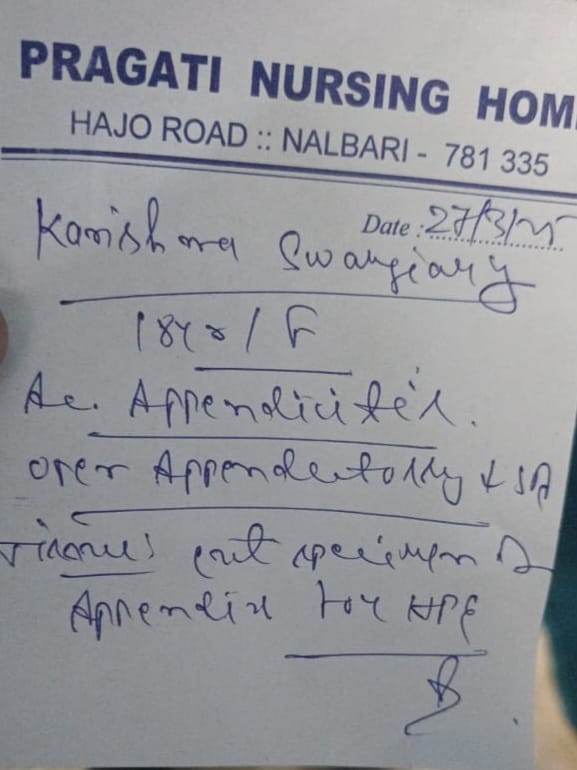 PRAGATI NURSING HOM
HAJO ROAD :: NALBARI - 781 335
Date : 27/3/25
Karishma Swargiary
18 Yrs / F
Ac. Appendicitis.
open Appendectomy
cut specimen of
Appendix for HPE